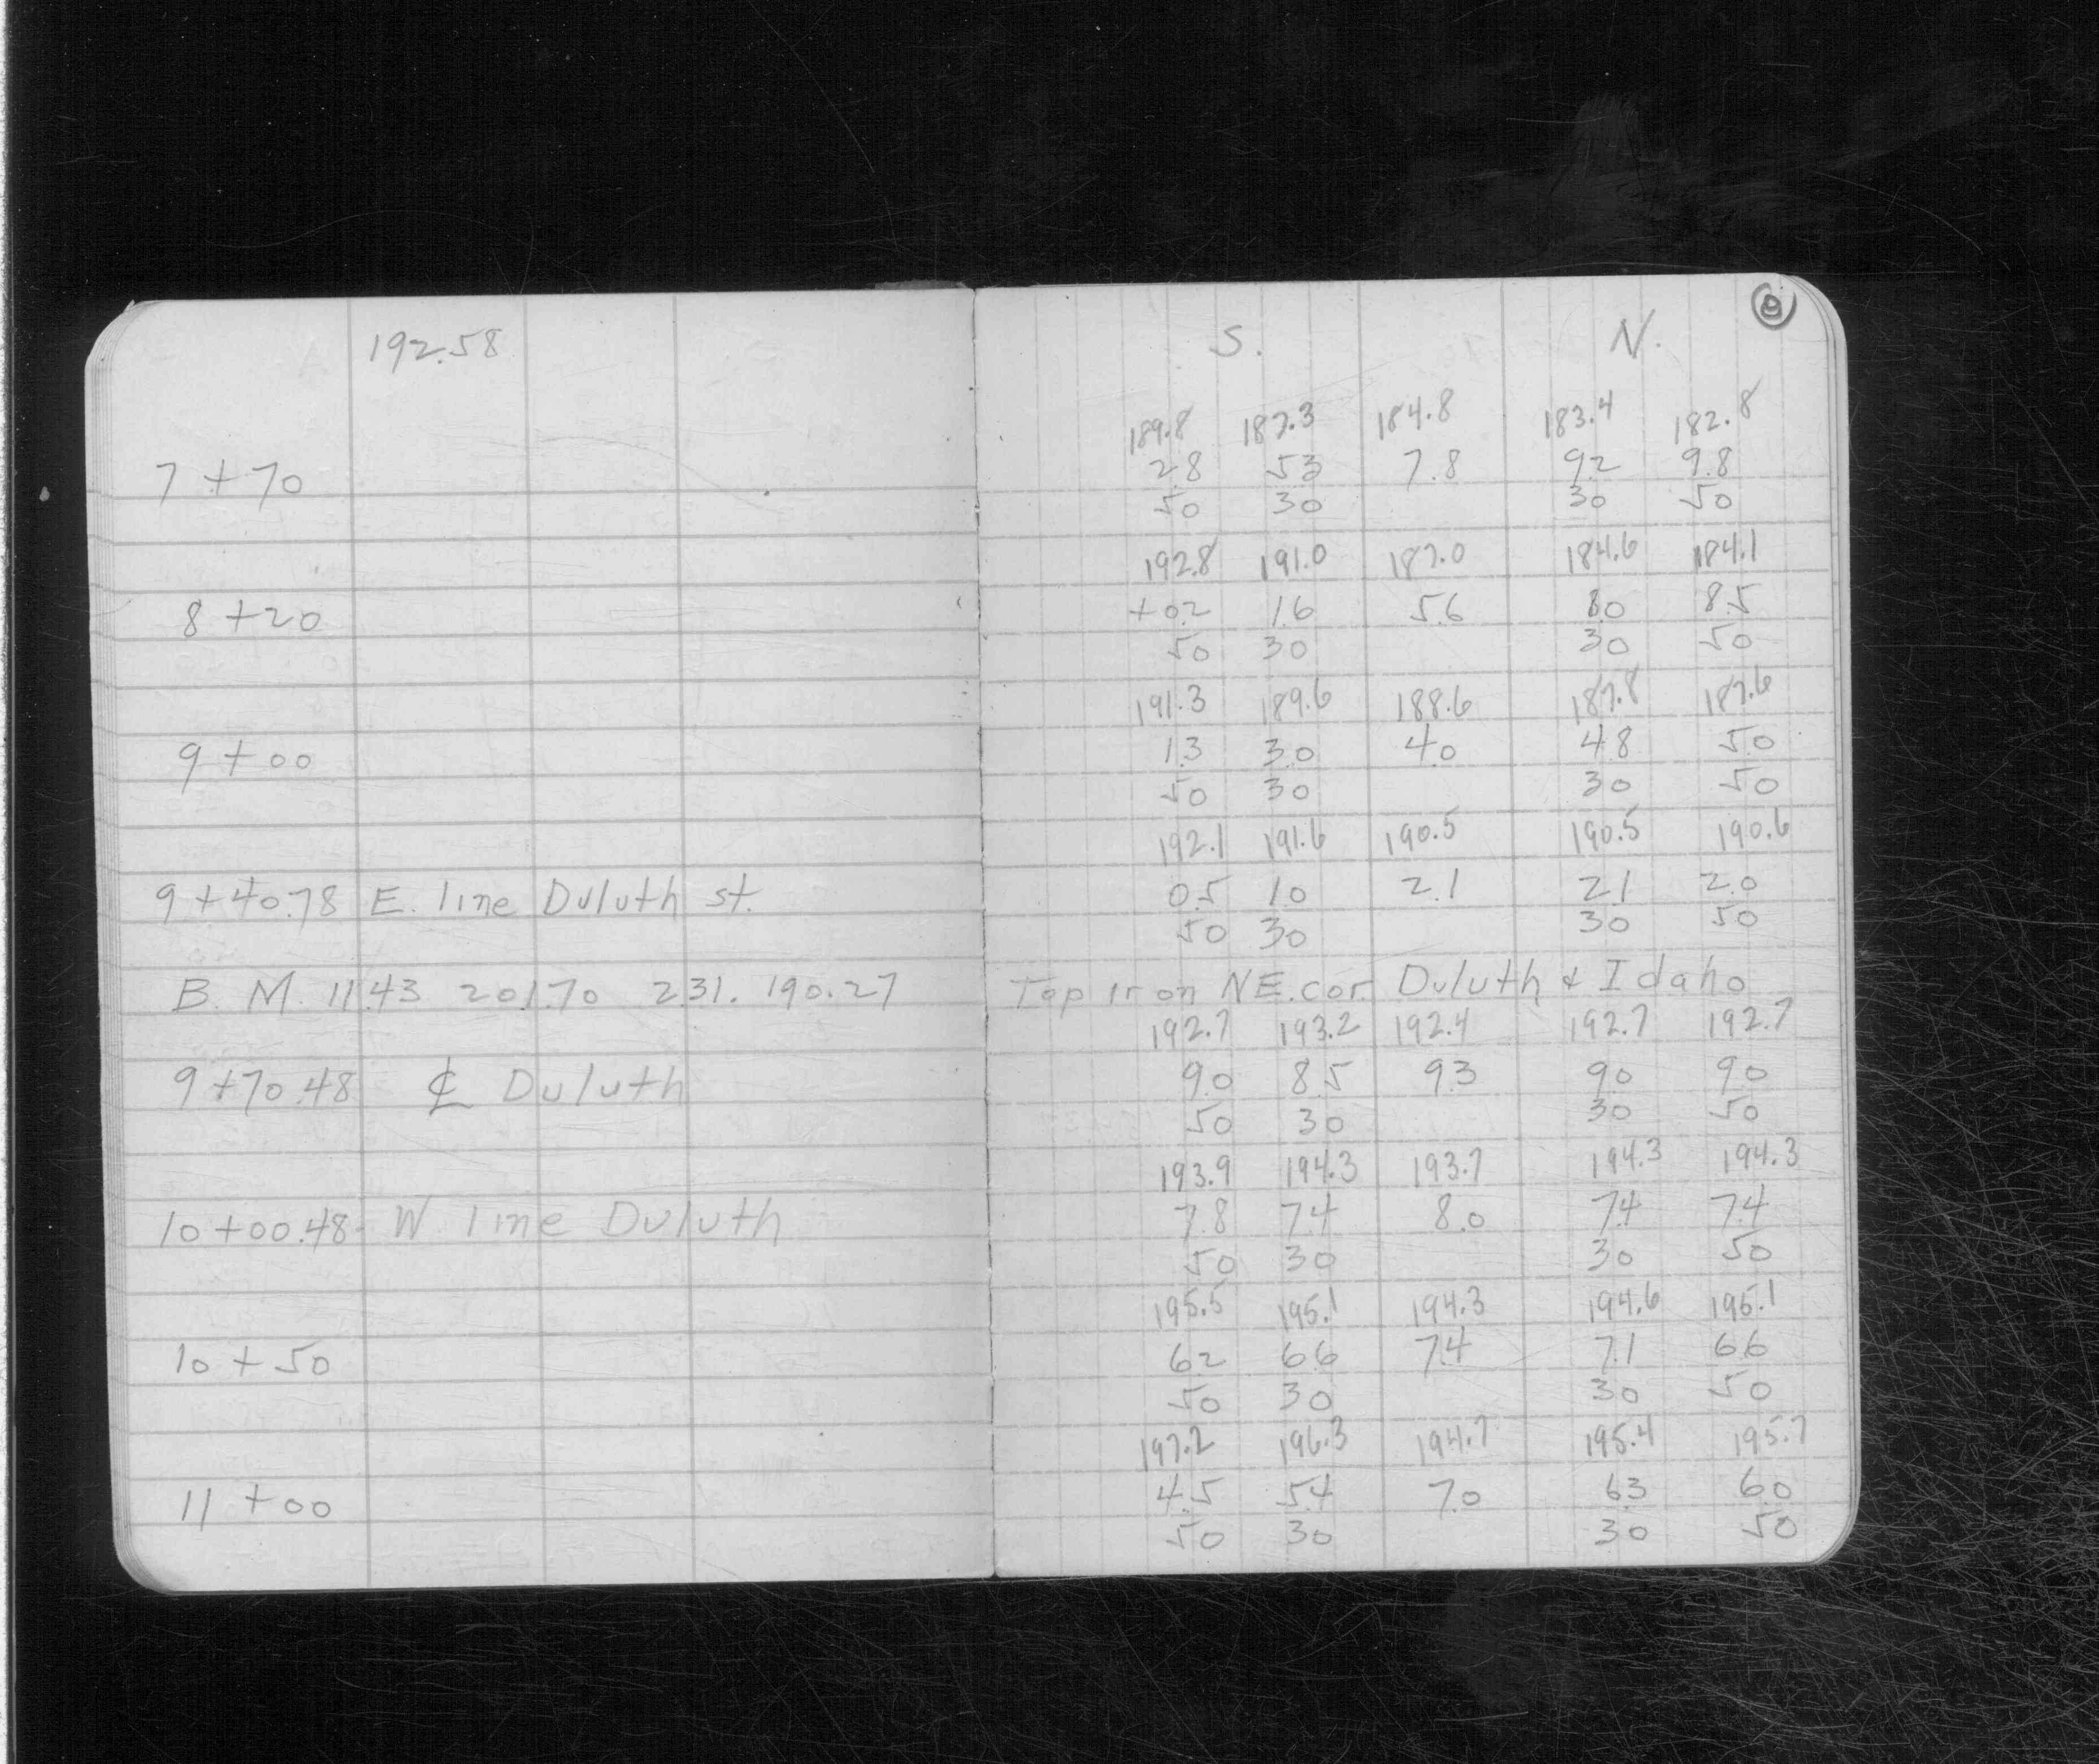 192.58 S. N.
189.8 187.3 184.8 183.4 182.8
7+70 2.8 5.3 7.8 9.2 9.8
50 30 30 50
192.8 191.0 187.0 184.6 184.1
8+20 +0.2 1.6 5.6 8.0 8.5
50 30 30 50
191.3 189.6 188.6 187.8 187.6
9+00 1.3 3.0 4.0 4.8 5.0
50 30 30 50
192.1 191.6 190.5 190.5 190.6
9+40.78 E. line Duluth st. 0.5 1.0 2.1 2.1 2.0
50 30 30 50
B. M. 11.43 201.70 2.31. 190.27 Top Iron NE. cor. Duluth & Idaho
192.7 193.2 192.4 192.7 192.7
9+70.48 ℄ Duluth 9.0 8.5 9.3 9.0 9.0
50 30 30 50
193.9 194.3 193.7 194.3 194.3
10+00.48 W line Duluth 7.8 7.4 8.0 7.4 7.4
50 30 30 50
195.5 195.1 194.3 194.6 195.1
10+50 6.2 6.6 7.4 7.1 6.6
50 30 30 50
197.2 196.3 194.7 195.4 195.7
11+00 4.5 5.4 7.0 6.3 6.0
50 30 30 50